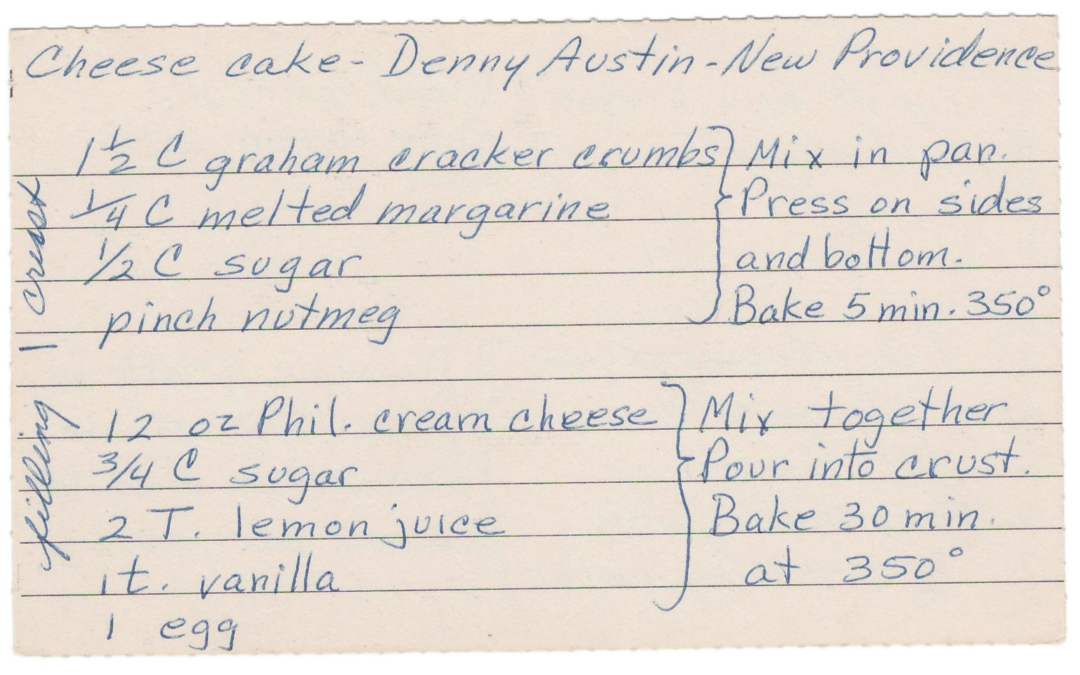 Cheese cake - Denny Austin - New Providence
1 crust
1 1/2 C graham cracker crumbs
1/4 C melted margarine
1/2 C sugar
pinch nutmeg
Mix in pan.
Press on sides
and bottom.
Bake 5 min. 350°
filling
12 oz Phil. cream cheese
3/4 C sugar
2 T. lemon juice
1 t. vanilla
1 egg
Mix together
Pour into crust.
Bake 30 min.
at 350°